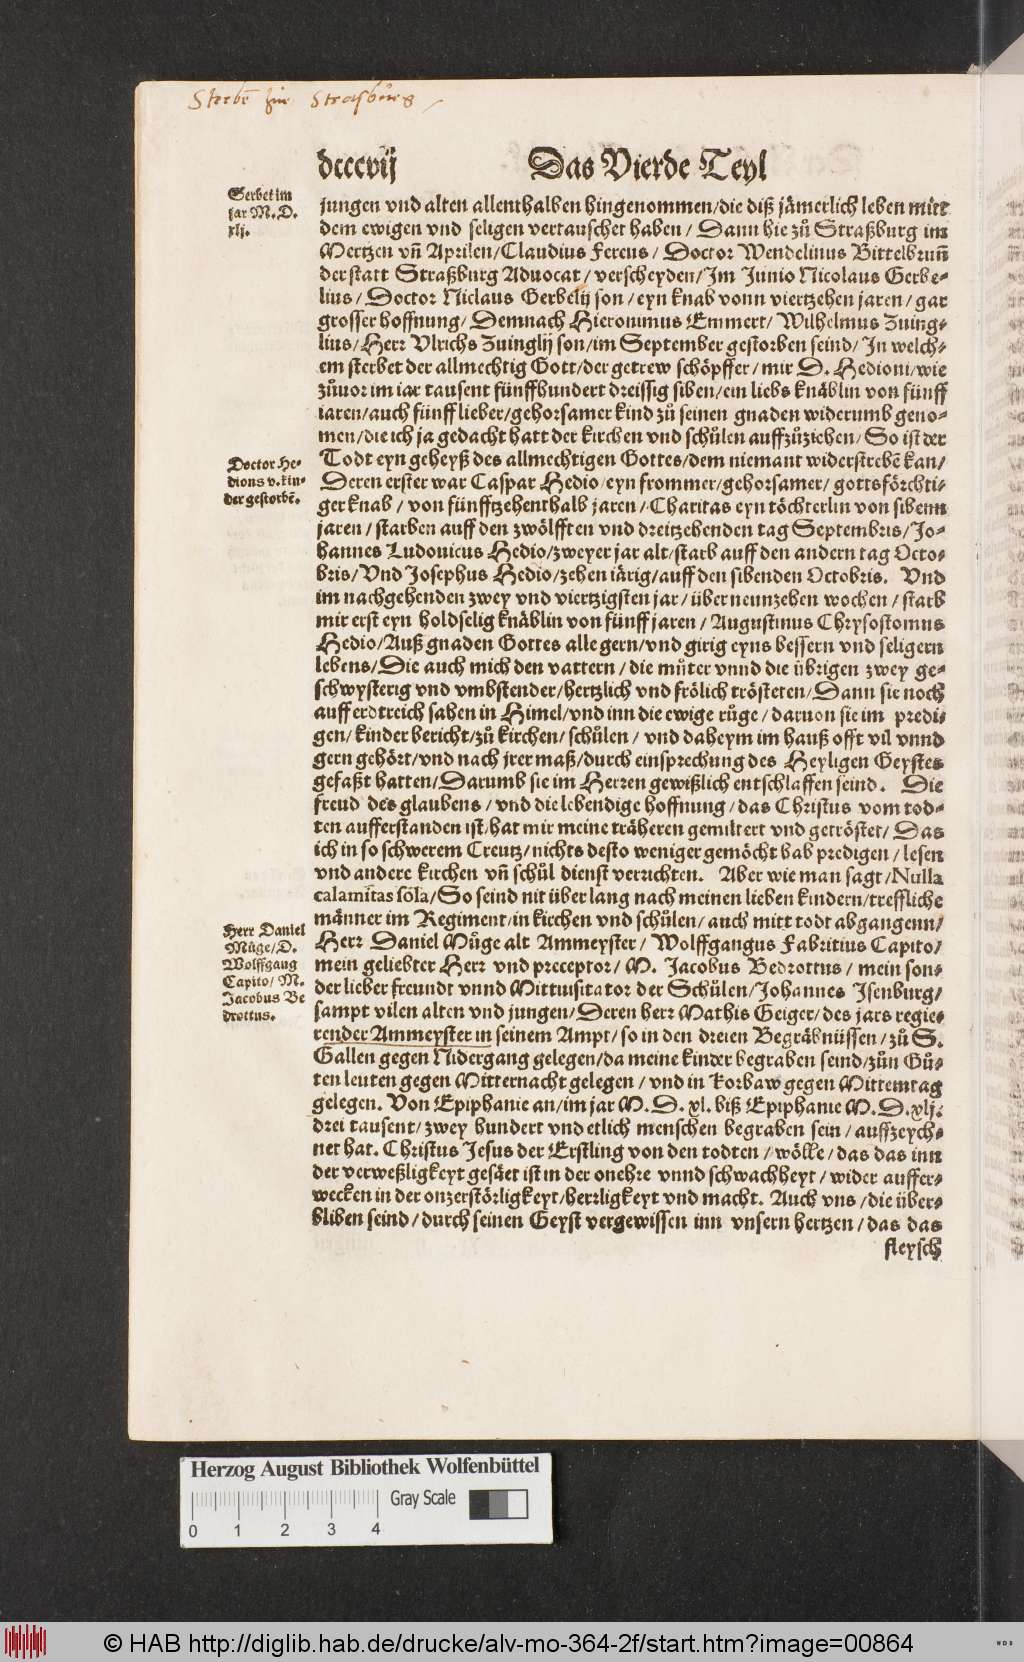 Sterbē zuͦ Strasbůrg
dcccvij Das Vierde Teyl
Serbet im
jar M. D.
xlj.
jungen vnd alten allenthalben hingenommen/die diß jämerlich leben mitt
dem ewigen vnd seligen vertauschet haben/ Dann hie zuͦ Straßburg im
Mertzen vñ Aprilen/Claudius Fereus/ Doctor Wendelinus Bittelbruñ
der statt Straßburg Aduocat/ verscheyden/Im Junio Nicolaus Gerbe-
lius/ Doctor Niclaus Gerbelij son/eyn knab vonn viertzehen jaren/ gar
grosser hoffnung/ Demnach Hieronimus Emmert/ Wilhelmus Zuing-
lius/Herr Vlrichs Zuinglij son/im September gestorben seind/ In welch-
em sterbet der allmechtig Gott/der getrew schöpffer/ mir D. Hedioni/wie
zuͦuor im iar tausent fünffhundert dreissig siben/ein liebs knäblin von fünff
iaren/auch fünff lieber/gehorsamer kind zuͦ seinen gnaden widerumb geno-
men/die ich ja gedacht hatt der kirchen vnd schuͦlen auffzuͦziehen/ So ist der
Todt eyn geheyß des allmechtigen Gottes/dem niemant widerstrebē kan/
Doctor He-
dions v. kin-
der gestorbē.
Deren erster war Caspar Hedio/eyn frommer/gehorsamer/ gottsförchti-
ger knab/ von fünfftzehenthalb jaren/ Charitas eyn töchterlin von sibenn
jaren/ starben auff den zwölfften vnd dreitzehenden tag Septembris/ Jo-
hannes Ludouicus Hedio/zweyer jar alt/starb auff den andern tag Octo-
bris/ Vnd Josephus Hedio/zehen iärig/auff den sibenden Octobris. Vnd
im nachgehenden zwey vnd viertzigsten jar/ über neunzehen wochen/ starb
mir erst eyn holdselig knäblin von fünff jaren/ Augustinus Chrysostomus
Hedio/Auß gnaden Gottes alle gern/vnd girig eyns bessern vnd seligern
lebens/ Die auch mich den vattern/ die muͦter vnnd die übrigen zwey ge-
schwysterig vnd vmbstender/hertzlich vnd frölich trösteten/ Dann sie noch
auff erdtreich sahen in Himel/vnd inn die ewige ruͦge/ daruon sie im predi-
gen/ kinder bericht/zuͦ kirchen/ schuͦlen/ vnd daheym im hauß offt vil vnnd
gern gehört/vnd nach jrer maß/durch einsprechung des Heyligen Geystes
gefaßt hatten/ Darumb sie im Herren gewißlich entschlaffen seind. Die
freud des glaubens/ vnd die lebendige hoffnung/ das Christus vom tod-
ten aufferstanden ist/hat mir meine träheren gemiltert vnd getröstet/ Das
ich in so schwerem Creutz/nichts desto weniger gemöcht hab predigen/ lesen
vnd andere kirchen vñ schuͦl dienst verrichten. Aber wie man sagt/Nulla
calamitas sola/So seind nit über lang nach meinen lieben kindern/treffliche
männer im Regiment/in kirchen vnd schuͦlen/ auch mitt todt abgangenn/
Herr Daniel
Müge/D.
Wolffgang
Capito/ M.
Jacobus Be
drottus.
Herr Daniel Müge alt Ammeyster/ Wolffgangus Fabritius Capito/
mein geliebter Herr vnd preceptor/ M. Jacobus Bedrottus/ mein son-
der lieber freundt vnnd Mittuisitator der Schuͦlen/Johannes Isenburg/
sampt vilen alten vnd jungen/ Deren herr Mathis Geiger/ des jars regie-
render Ammeyster in seinem Ampt/ so in den dreien Begräbnüssen/ zuͦ S.
Gallen gegen Nidergang gelegen/da meine kinder begraben seind/zuͦn Guͦ-
ten leuten gegen Mitternacht gelegen/ vnd in Korbaw gegen Mittemtag
gelegen. Von Epiphanie an/im jar M. D. xl. biß Epiphanie M. D. xlj.
drei tausent/ zwey hundert vnd etlich menschen begraben sein/ auffzeych-
net hat. Christus Jesus der Erstling von den todten/ wölle/ das das inn
der verweßligkeyt gesäet ist in der onehre vnnd schwachheyt/ wider auffer-
wecken in der onzerstörligkeyt/herrligkeyt vnd macht. Auch vns/die über-
bliben seind/ durch seinen Geyst vergewissen inn vnsern hertzen/ das das
fleysch
Herzog August Bibliothek Wolfenbüttel
Gray Scale
0 1 2 3 4
© HAB http://diglib.hab.de/drucke/alv-mo-364-2f/start.htm?image=00864